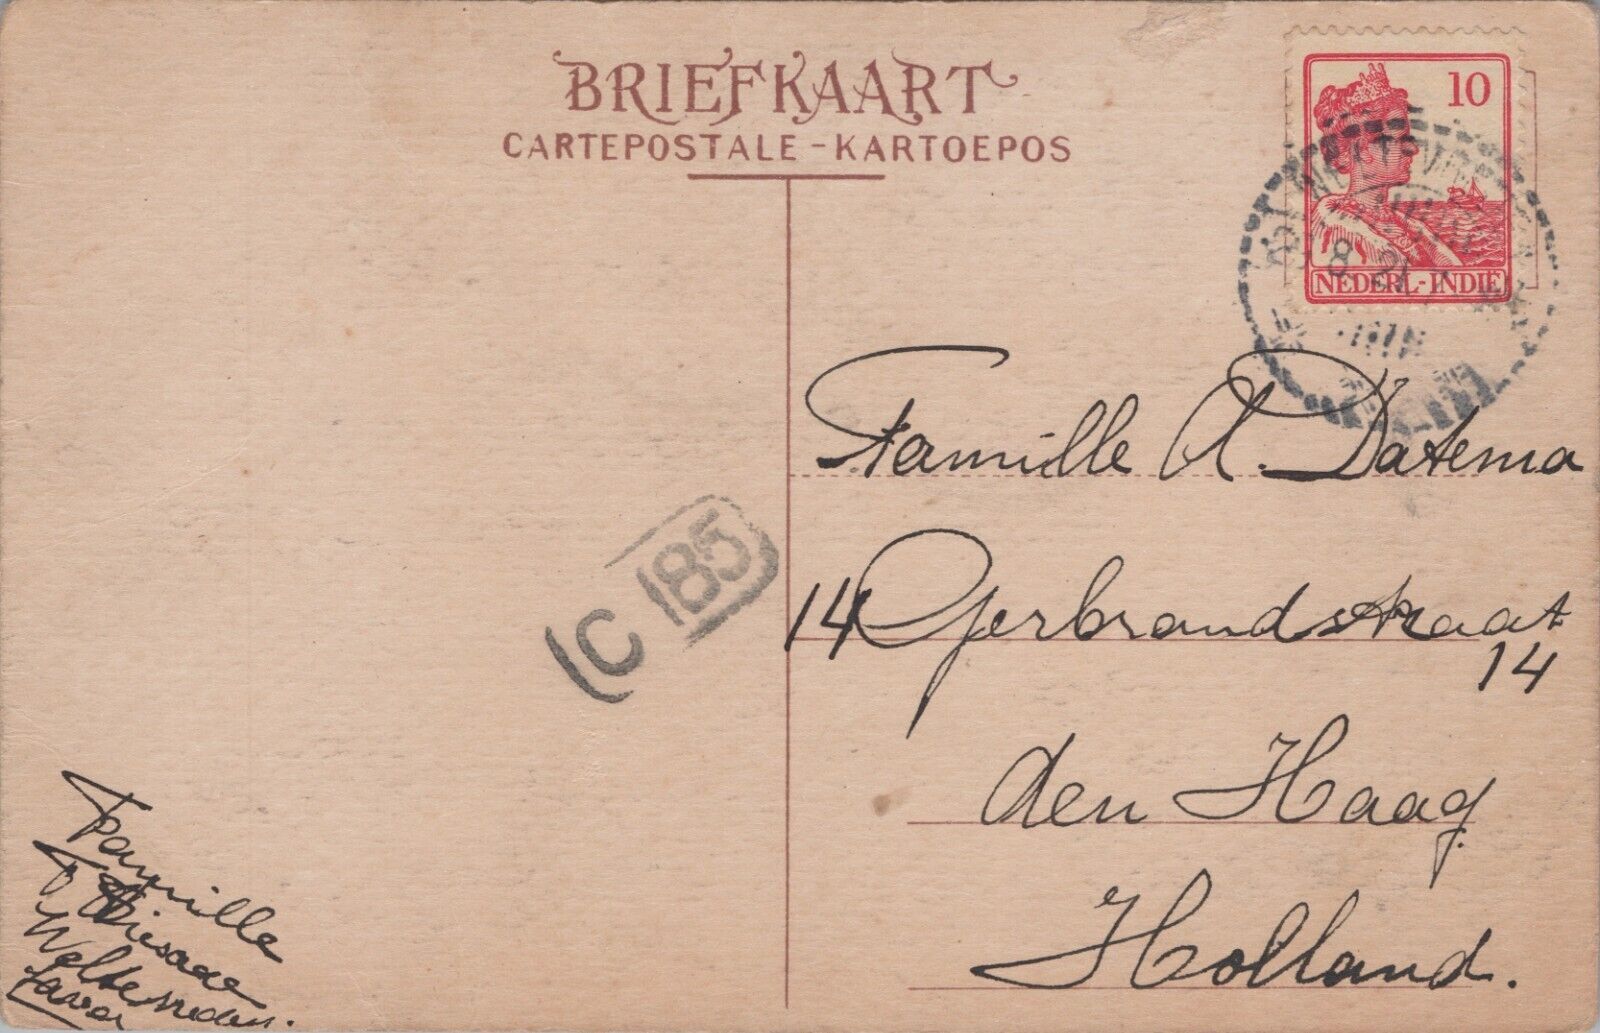 BRIEFKAART
CARTEPOSTALE - KARTOEPOS
10
NEDERL-INDIË
WELTEVREDEN
Familie A. Datema
14 Gerbrandstraat
14
den Haag
Holland.
C 185
Familie
Weltevreden.
Java